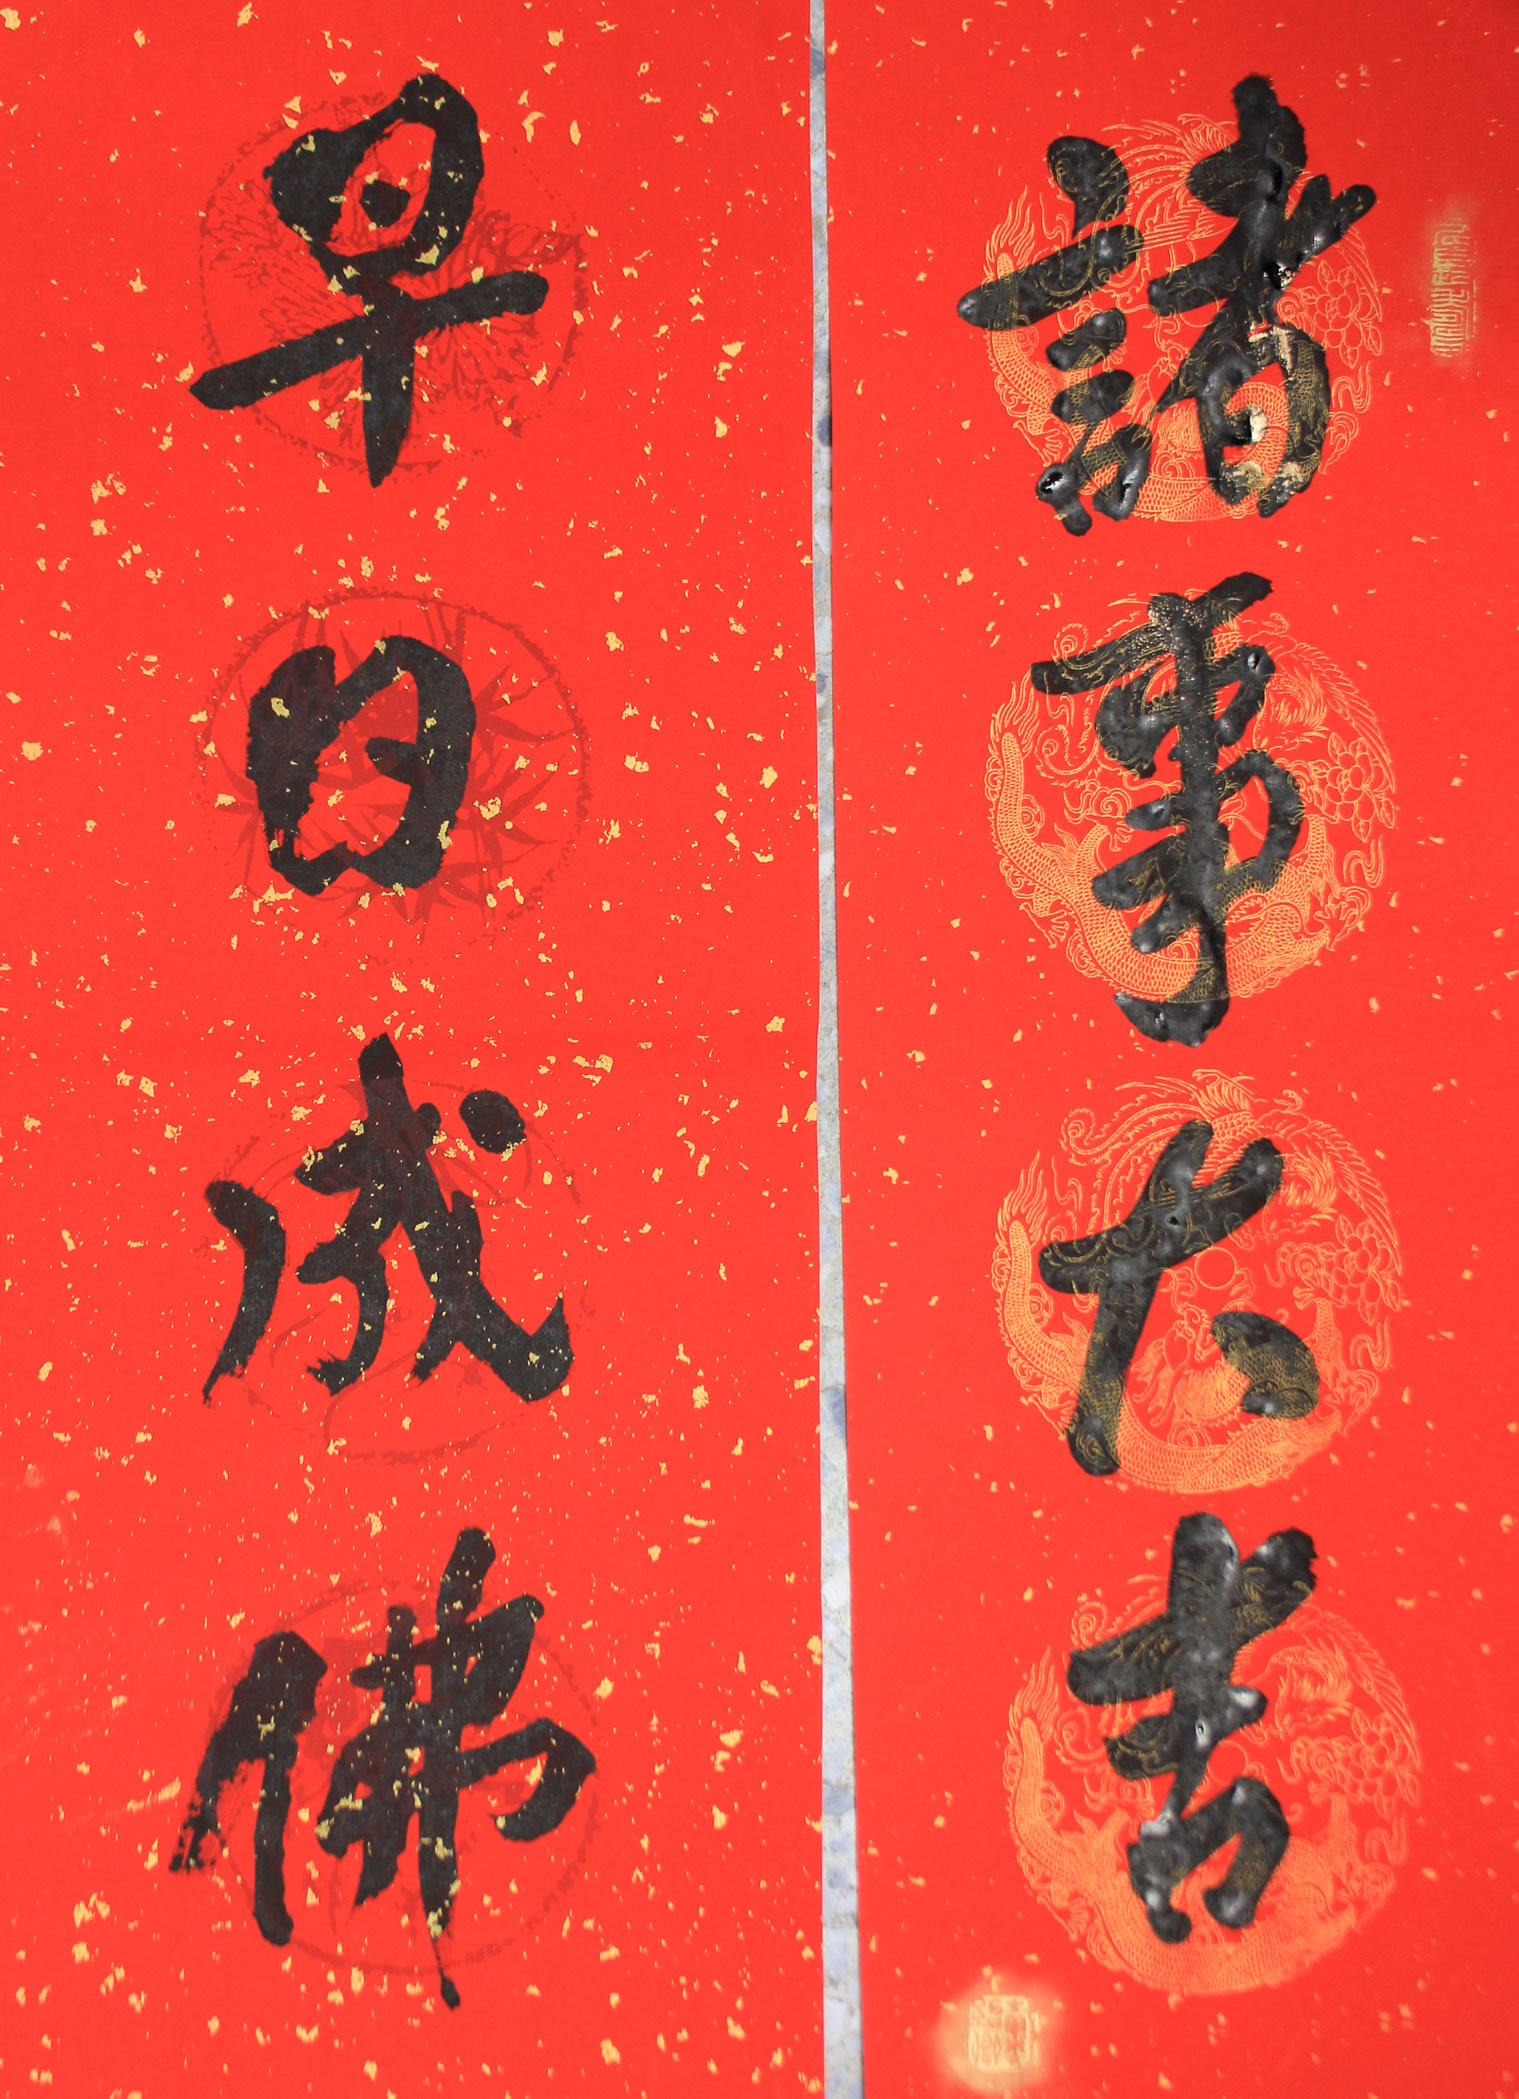 諸事大吉
早日成佛